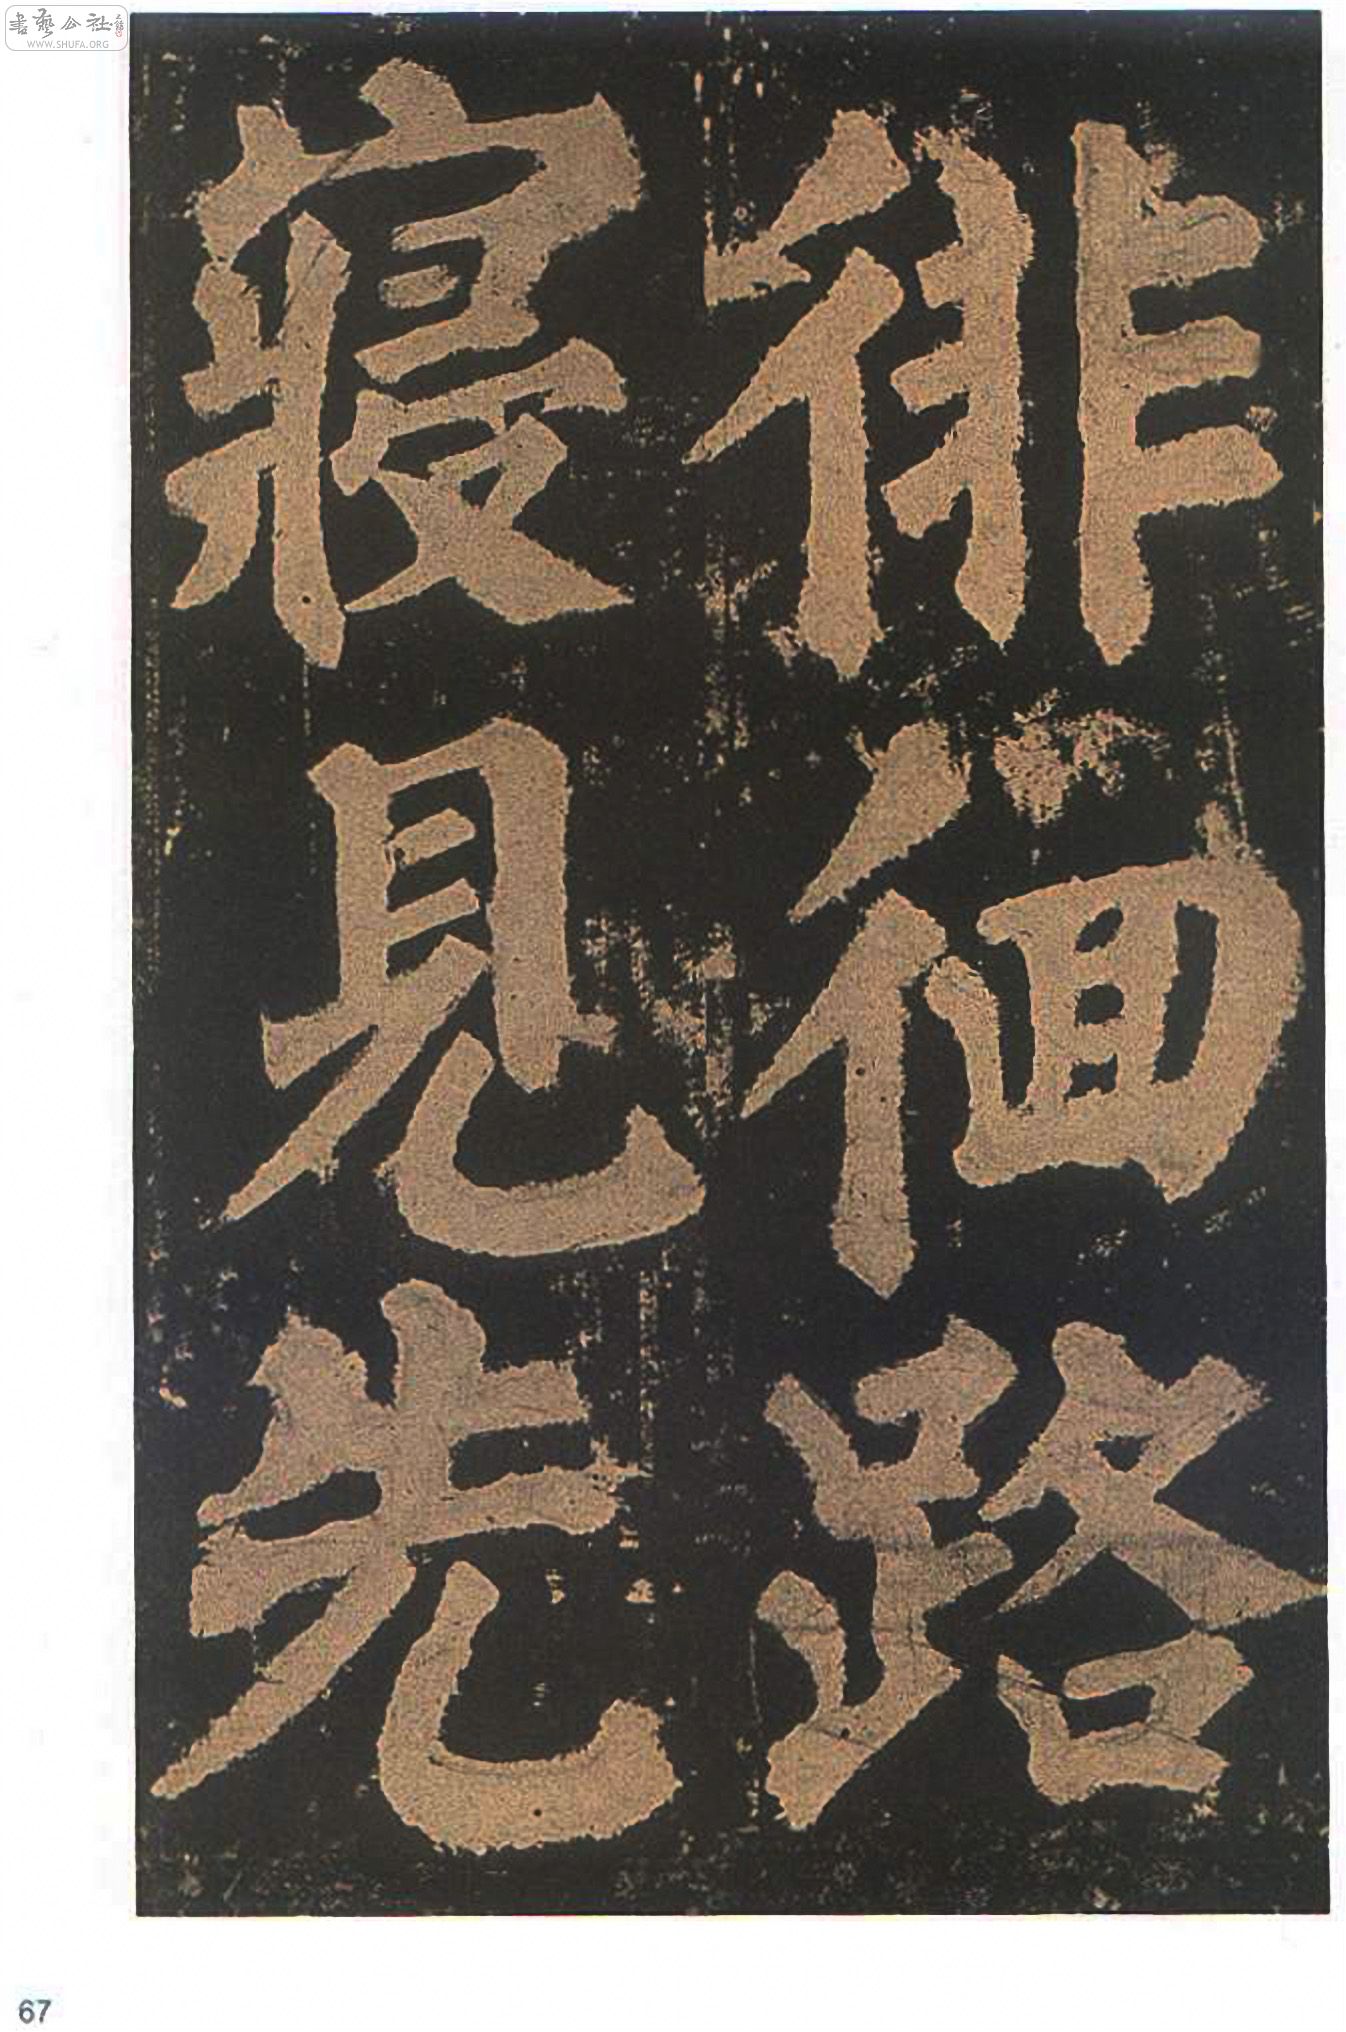 書藝公社
WWW.SHUFA.ORG
徘徊路
寢見先
67